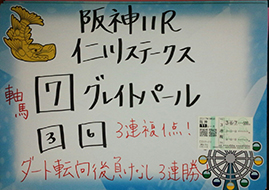 阪神11R
仁川ステークス
軸馬
7 グレイトパール
3 6 3連複1点!
ダート転向後負けなし3連勝